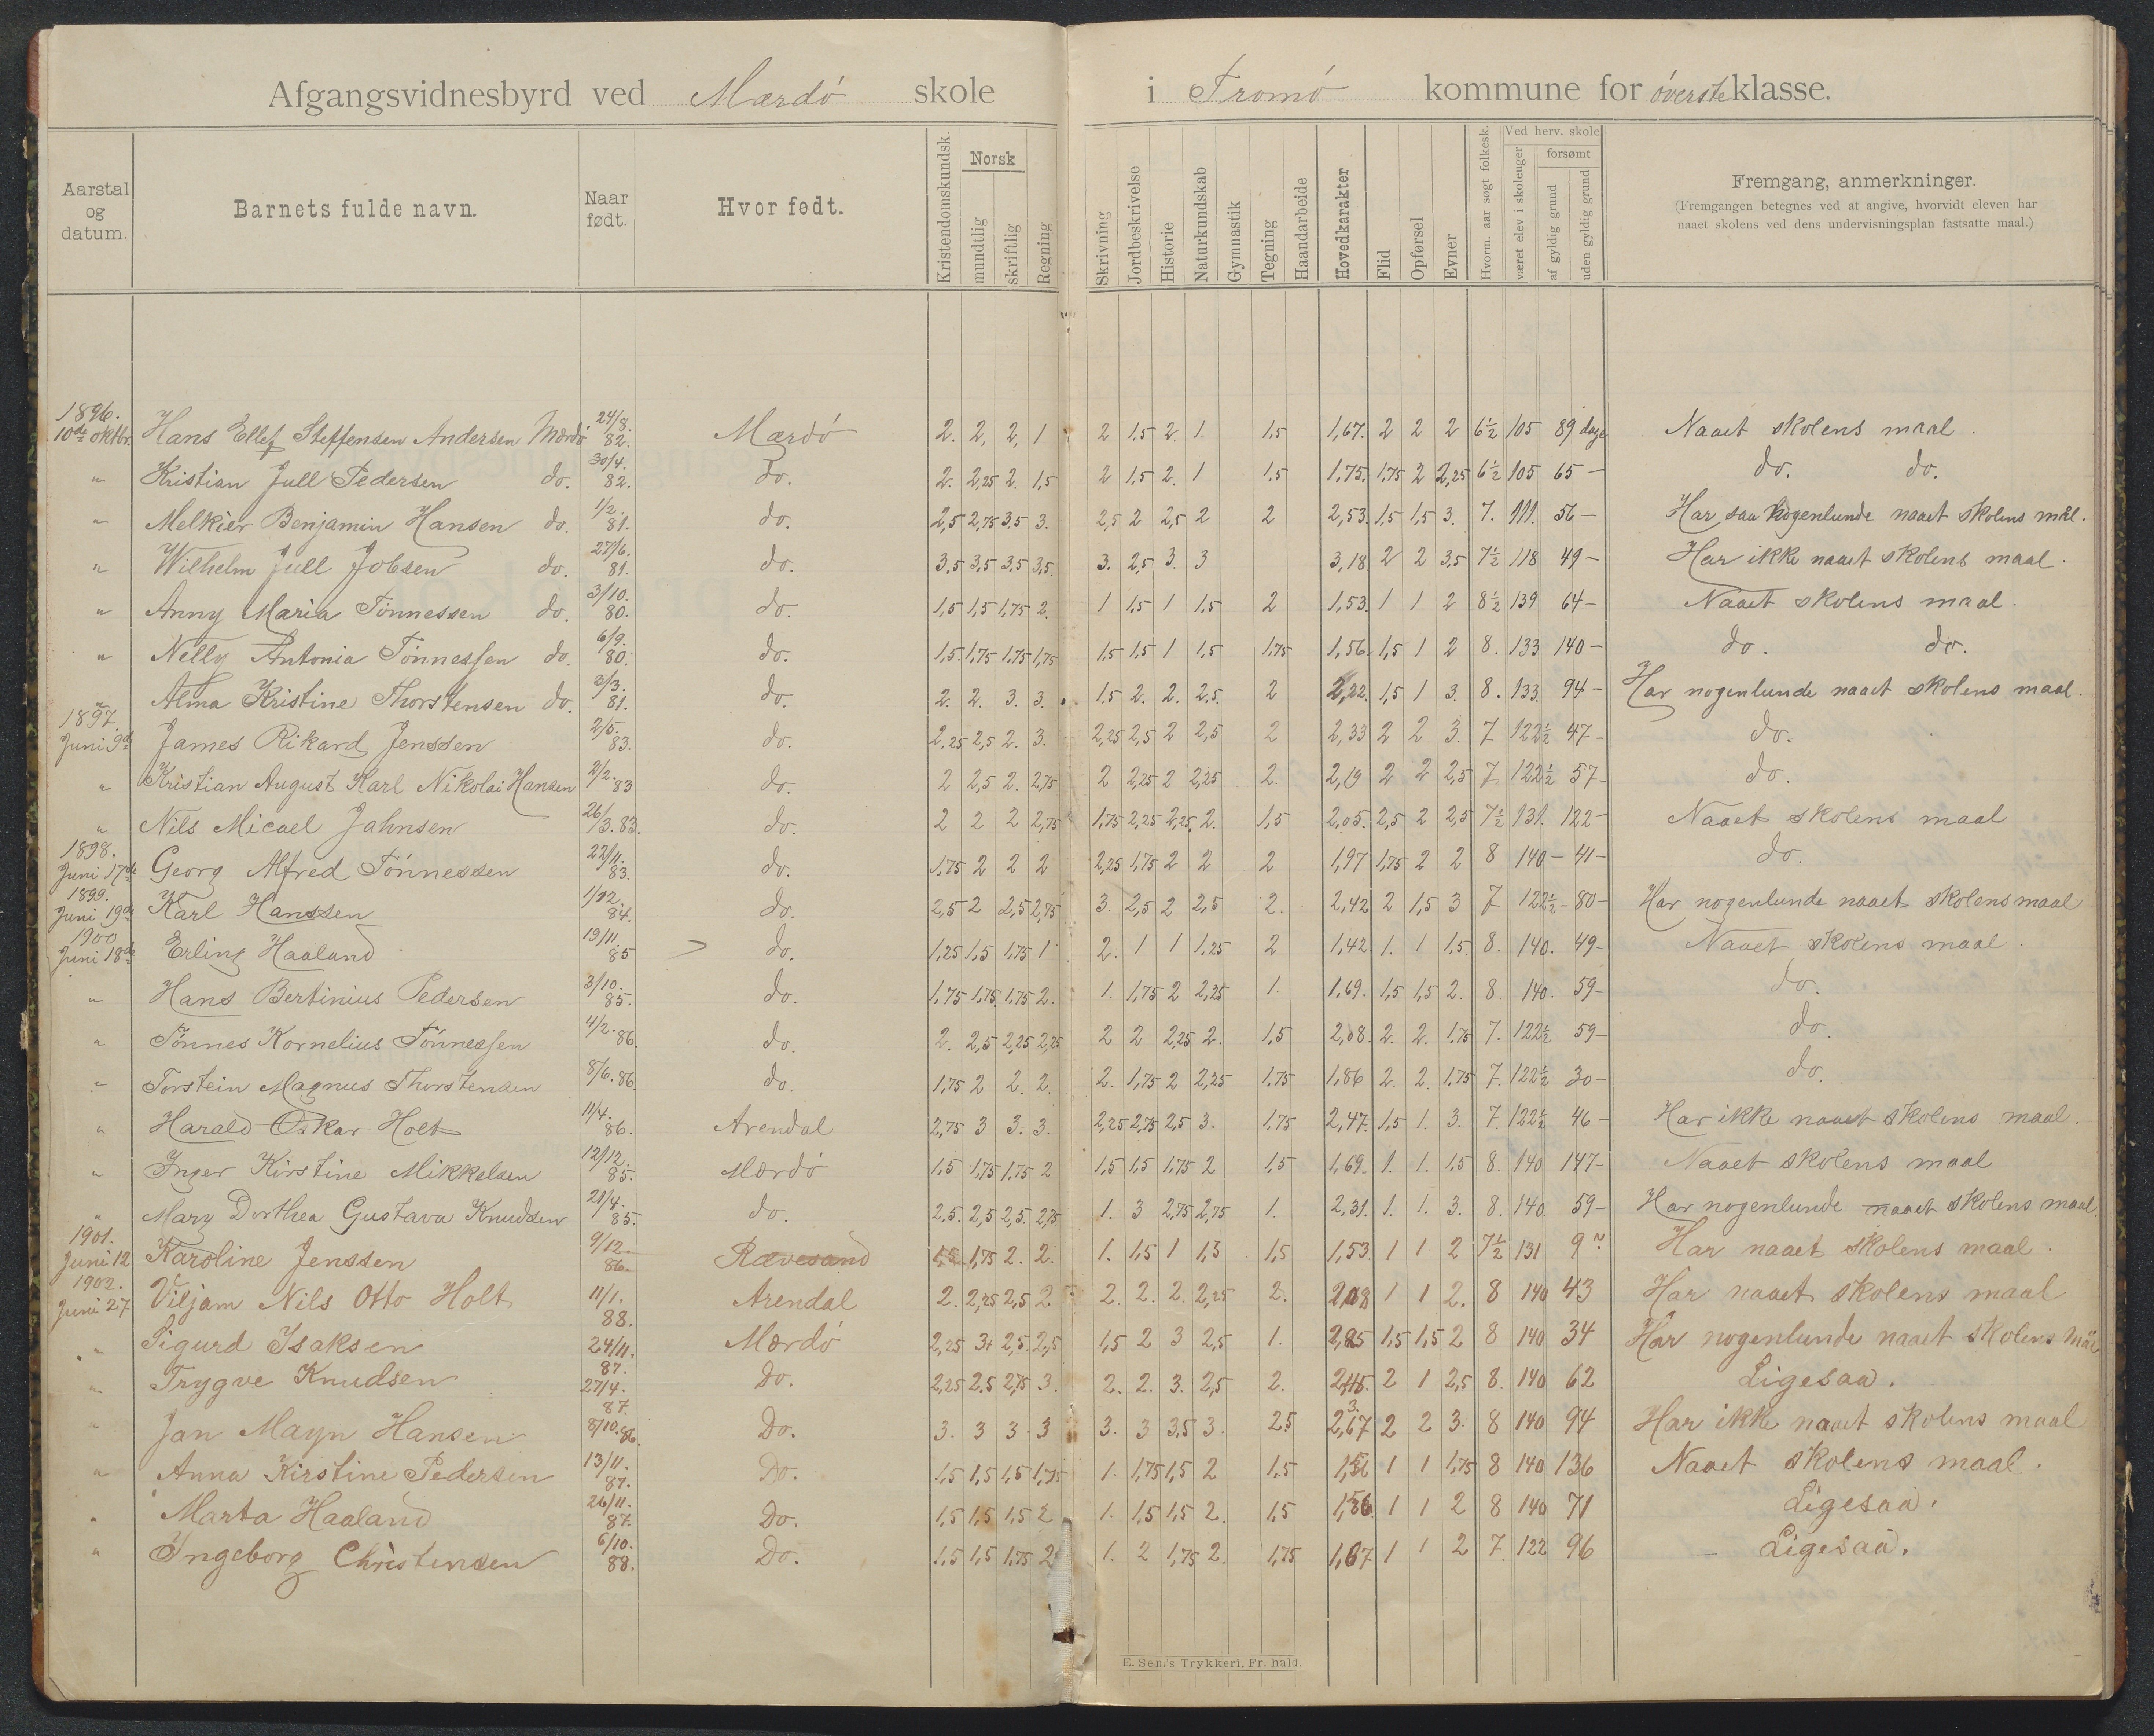 Afgangsvidnesbyrd ved Mærdö skole i Tromö kommune for överste klasse.
Aarstal og datum. Barnets fulde navn. Naar født. Hvor født. Kristendomskundsk. Norsk mundtlig skriftlig Regning Skrivning Jordbeskrivelse Historie Naturkundskab Gymnastik Tegning Haandarbeide Hovedkarakter Flid Opførsel Evner Hvorm. aar søgt folkesk. Ved herv. skole været elev i skoleuger forsømt af gyldig grund uden gyldig grund Fremgang, anmerkninger.
(Fremgangen betegnes ved at angive, hvorvidt eleven har
naaet skolens ved dens undervisningsplan fastsatte maal.)
1896. 10de oktbr. Hans Ellef Steffensen Andersen Mærdö 24/8. 82. Mærdö 2. 2, 2, 1 2 1.5 2. 1. 1,5 1,67. 2 2 2 6½ 105 89 dage Naaet skolens maal.
" Kristian Jull Pedersen do. 30/4. 82. do. 2. 2,25 2. 1,5 2 1,5 2. 1 1.5 1.75. 1.75 2 2,25 6½ 105 65 — do. do.
" Melkier Benjamin Hansen do. 1/2. 81. do. 2,5 2,75 3,5 3. 2,5 2 2,5 2 2 2,53. 1,5 1,5 3. 7. 111. 56 — Har saa nogenlunde naaet skolens mål.
" Wilhelm Jull Jobsen do. 27/6. 81. do. 3,5 3,5 3,5 3,5. 3. 2,5 3. 3 3,18. 2 2 3,5 7½ 118 49 — Har ikke naaet skolens maal.
" Anny Maria Tönnessen do. 3/10. 80. do. 1,5 1,5 1,75 2. 1 1,5 1 1,5 2 1,53. 1 1 2 8½ 139 64 — Naaet skolens maal.
" Nelly Antonia Tönnessen do. 6/9. 80. do. 1,5. 1,75 1,75 1,75 1,5 1,5 1 1,5 1,75 1,56. 1,5 1 2 8. 133 140 — do. do.
" Alma Kristine Thorstensen do. 3/3. 81. do. 2. 2. 3. 3. 1,5 2. 2. 2,5. 2 2,22. 1,5 1 3. 8. 133. 94 — Har nogenlunde naaet skolens maal.
1897. Juni 9de James Rikard Jenssen 2/5. 83. do. 2,25 2,5 2. 3. 2,25 2,5 2 2,5 2 2,33 2 2 3. 7 122½ 47 — do.
" Kristian August Karl Nikolai Hansen 2/2. 83 do. 2 2,5 2. 2,75 2 2,25 2 2,25 2. 2,19 2 2 2,5 7 122½ 57 — do.
" Nils Micael Jahnsen 26/3. 83. do. 2 2 2 2,75 1,75 2,25 2,25. 2. 1,5 2,05. 2,5 2 2,5 7½ 131. 122 — Naaet skolens maal
1898. Juni 17de Georg Alfred Tönnessen 22/11. 83. do. 1,75 2 2 2 2,25 1,75 2 2 2 1,97 1,75 2 2 8 140 — 41 — do.
1899. Juni 19de Karl Hanssen 1/12. 84. do. 2,5 2 2,5 2,75 3. 2,5 2 2,5 2. 2,42 2 1,5 3 7 122½ — 80 — Har nogenlunde naaet skolens maal
1900 Juni 18de Erling Haaland 19/11. 85 do. 1,25 1,5 1,75 1 2. 1 1 1.25 2 1,42 1. 1 1.5 8. 140. 49 — Naaet skolens maal.
" Hans Bertinius Pedersen 3/10. 85. do. 1.75 1.75. 1.75 2. 1. 1,75 2 2,25 1. 1.69. 1.5 1,5 2. 8. 140. 59 — do.
" Tönnes Kornelius Tönnessen 4/2. 86. do. 2. 2,5 2,25 2,25 2 2 2,25 2. 1,5 2,08. 2. 2. 1.75 7. 122½ 59 — do.
" Torstein Magnus Thorstensen 8/6. 86. do. 1,75 2 2. 2. 2. 1,75 2 2,25 1.75 1,86 2. 2. 1.75 7. 122½ 30 — do.
" Harald Oskar Holt 11/4. 86. Arendal 2,75 3 3. 3. 2,25 2,75 2,5 3. 1.75 2,47. 1,5 1. 3. 7. 122½ 46 — Har ikke naaet skolens maal.
" Inger Kirstine Mikkelsen 12/12. 85. Mærdö 1.5 1,75 1,75 2 1,5 1,5 1.75 2 1,5 1,69. 1. 1. 1.5 8. 140 147 — Naaet skolens maal
" Mary Dorthea Gustava Knudsen 21/4. 85. do. 2,5. 2,5 2,5. 2,75 1. 3 2,75 2,75 1. 2,31. 1. 1. 3. 8. 140 59 — Har nogenlunde naaet skolens maal.
1901. Juni 12 Karoline Jenssen 9/12. 86. Rævesand 1,5 1,75 2. 2. 1. 1,5 1 1,3 1,5 1,53. 1 1 2 7½ 131 9 Har naaet skolens maal.
1902. Juni 27 Viljam Nils Otto Holt 11/1. 88. Arendal 2. 2,25 2,5 2 2. 2. 2. 2,25 2. 2,08 1 1 2. 8 140 43 Har naaet skolens maal
" Sigurd Isaksen 24/11. 87. Mærdö 2,25 3+ 2,5. 2,5 1,5 2 3 2,5 1. 1,5 1,5 2 8 140 34 Har nogenlunde naaet skolens mål
" Trygve Knudsen 27/4. 87. Do. 2,25 2.5 2,75 3. 2. 2. 3. 2,5 2. 2 1 2,5 8. 140 62 Ligesaa.
" Jan Mayn Hansen 8/10. 86. Do. 3. 3 3. 3 3. 3 3,5 3. 2,5 2 2 3. 8 140 94 Har ikke naaet skolens maal
" Anna Kirstine Pedersen 13/11. 87. Do. 1,5 1,5 1,5 1,75 1. 1,75 1,5 2 1,5 1 1 1,75 8 140 136 Naaet skolens maal.
" Marta Haaland 26/11. 87. Do. 1,5 1,5 1,5 2 1. 1,5 1,5 2. 1,5 1 1 2 8 140 71 Ligesaa.
" Ingeborg Christensen 6/10. 88. Do. 1.5 1,5 1,75 2 1. 2 1,75 2. 1,75 1,67 1 1 2 7. 122 96 — Ligesaa.
E. Sem's Trykkeri, Fr. hald.